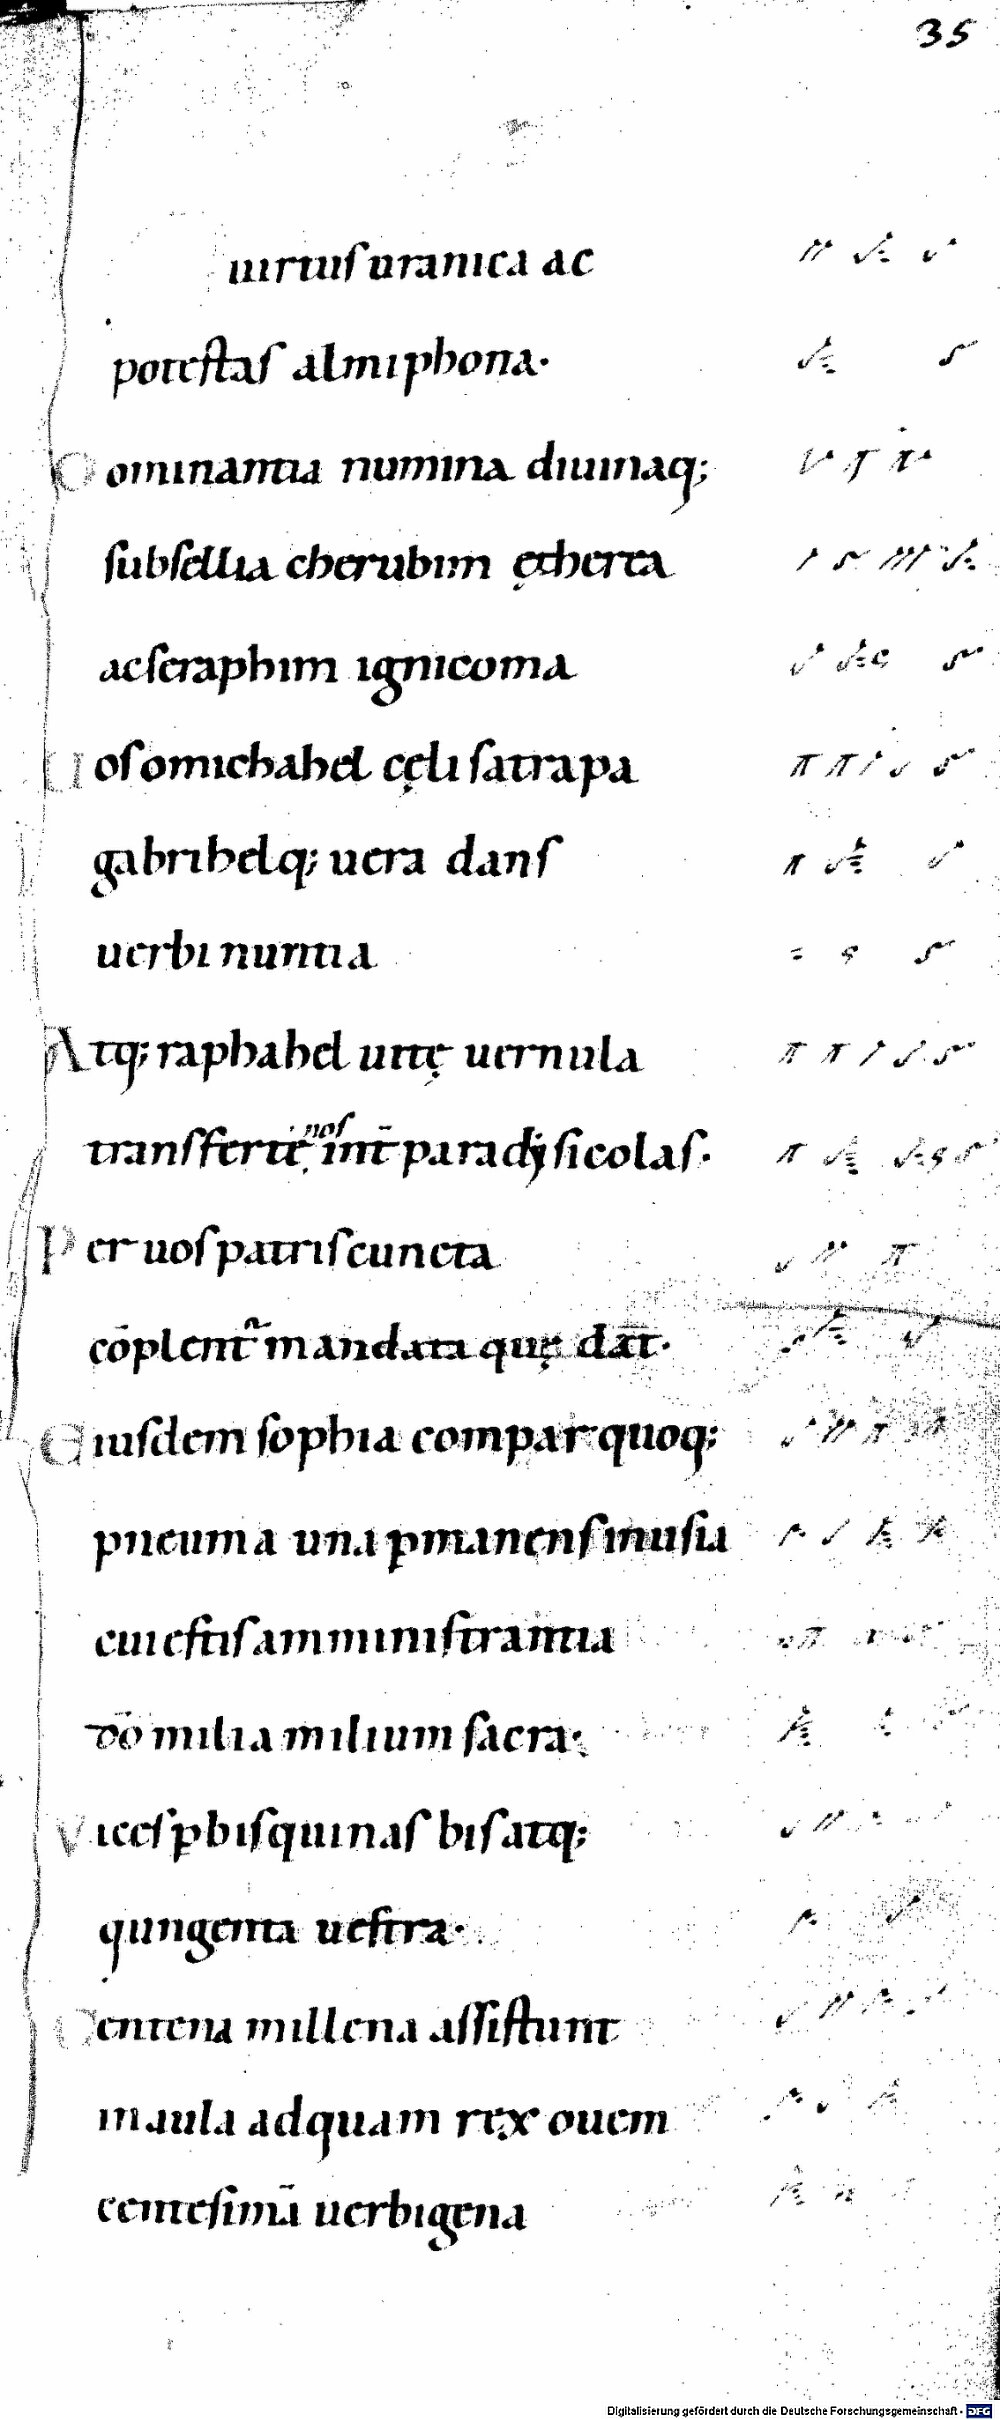 35
uirtus uranica ac
potestas almiphona·
Dominantia numina diuinaq;
subsellia cherubim ętherea
ac seraphim ignicoma
Uos o michahel cęli satrapa
gabrihelq; uera dans
uerbi nuntia
Atq; raphahel uitę uernula
transferte nos int̄ paradysicolas·
Per uos patris cuncta
cōplent᷑ mandata quę dat·
Eiusdem sophia compar quoq;
pneuma una ꝑmanens in usia
cui estis amministrantia
dō milia milium sacra·
Vices ꝑ bis quinas bis atq;
quingenta uestra·
Centena millena assistunt
in aula ad quam rex ouem
centesimā uerbigena
Digitalisierung gefördert durch die Deutsche Forschungsgemeinschaft - DFG